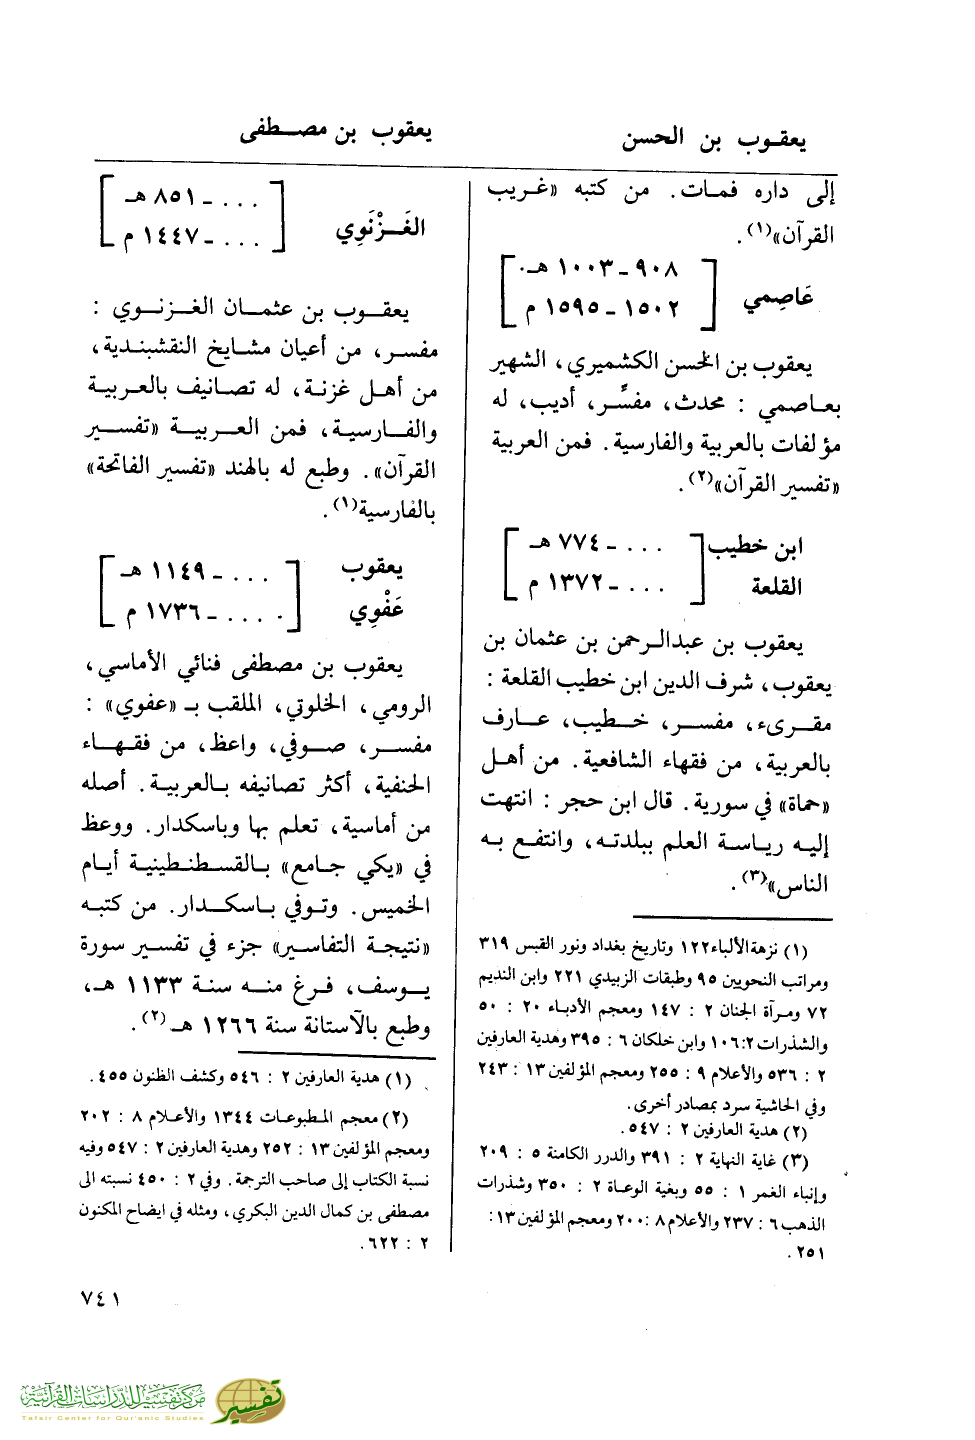 يعقوب بن الحسن
يعقوب بن مصطفى
إلى داره فمات. من كتبه «غريب
القرآن»(١).
عَاصِمي
٩٠٨ ـ ١٠٠٣ هـ
١٥٠٢ ـ ١٥٩٥ م
يعقوب بن الحسن الكشميري، الشهير
بعاصمي : محدث، مفسِّر، أديب، له
مؤلفات بالعربية والفارسية. فمن العربية
«تفسير القرآن»(٢).
ابن خطيب
القلعة
... ـ ٧٧٤ هـ
... ـ ١٣٧٢ م
يعقوب بن عبدالرحمن بن عثمان بن
يعقوب، شرف الدين ابن خطيب القلعة :
مقرىء، مفسر، خطيب، عارف
بالعربية، من فقهاء الشافعية. من أهل
«حماة» في سورية. قال ابن حجر : انتهت
إليه رياسة العلم ببلدته، وانتفع به
الناس»(٣).
(١) نزهة الألباء ١٢٢ وتاريخ بغداد ونور القبس ٣١٩
ومراتب النحويين ٩٥ وطبقات الزبيدي ٢٢١ وابن النديم
٧٢ ومرآة الجنان ٢ : ١٤٧ ومعجم الأدباء ٢٠ : ٥٠
والشذرات ٢:١٠٦ وابن خلكان ٦ : ٣٩٥ وهدية العارفين
٢ : ٥٣٦ والأعلام ٩ : ٢٥٥ ومعجم المؤلفين ١٣ : ٢٤٣
وفي الحاشية سرد بمصادر أخرى.
(٢) هدية العارفين ٢ : ٥٤٧.
(٣) غاية النهاية ٢ : ٣٩١ والدرر الكامنة ٥ : ٢٠٩
وإنباء الغمر ١ : ٥٥ وبغية الوعاة ٢ : ٣٥٠ وشذرات
الذهب ٦ : ٢٣٧ والأعلام ٨ : ٢٠٠ ومعجم المؤلفين ١٣ :
٢٥١ .
الغَزْنَوِي
... ـ ٨٥١ هـ
... ـ ١٤٤٧ م
يعقوب بن عثمان الغزنوي :
مفسر، من أعيان مشايخ النقشبندية،
من أهل غزنة، له تصانيف بالعربية
والفارسية، فمن العربية «تفسير
القرآن». وطبع له بالهند «تفسير الفاتحة»
بالفارسية(١).
يعقوب
عَفْوِي
... ـ ١١٤٩ هـ
.... ـ ١٧٣٦ م
يعقوب بن مصطفى فنائي الأماسي،
الرومي، الخلوتي، الملقب بـ «عفوي» :
مفسر، صوفي، واعظ، من فقهاء
الحنفية، أكثر تصانيفه بالعربية. أصله
من أماسية، تعلم بها وباسكدار. ووعظ
في «يكي جامع» بالقسطنطينية أيام
الخميس. وتوفي باسكدار. من كتبه
«نتيجة التفاسير» جزء في تفسير سورة
يوسف، فرغ منه سنة ١١٣٣ هـ،
وطبع بالآستانة سنة ١٢٦٦ هـ(٢).
(١) هدية العارفين ٢ : ٥٤٦ وكشف الظنون ٤٥٥ .
(٢) معجم المطبوعات ١٣٤٤ والأعلام ٨ : ٢٠٢
ومعجم المؤلفين ١٣ : ٢٥٢ وهدية العارفين ٢ : ٥٤٧ وفيه
نسبة الكتاب إلى صاحب الترجمة. وفي ٢ : ٤٥٠ نسبته الى
مصطفى بن كمال الدين البكري، ومثله في ايضاح المكنون
٢ : ٦٢٢.
٧٤١
مركز تفسير للدراسات القرآنية
Tafsir Center for Qur'anic Studies
تفسير